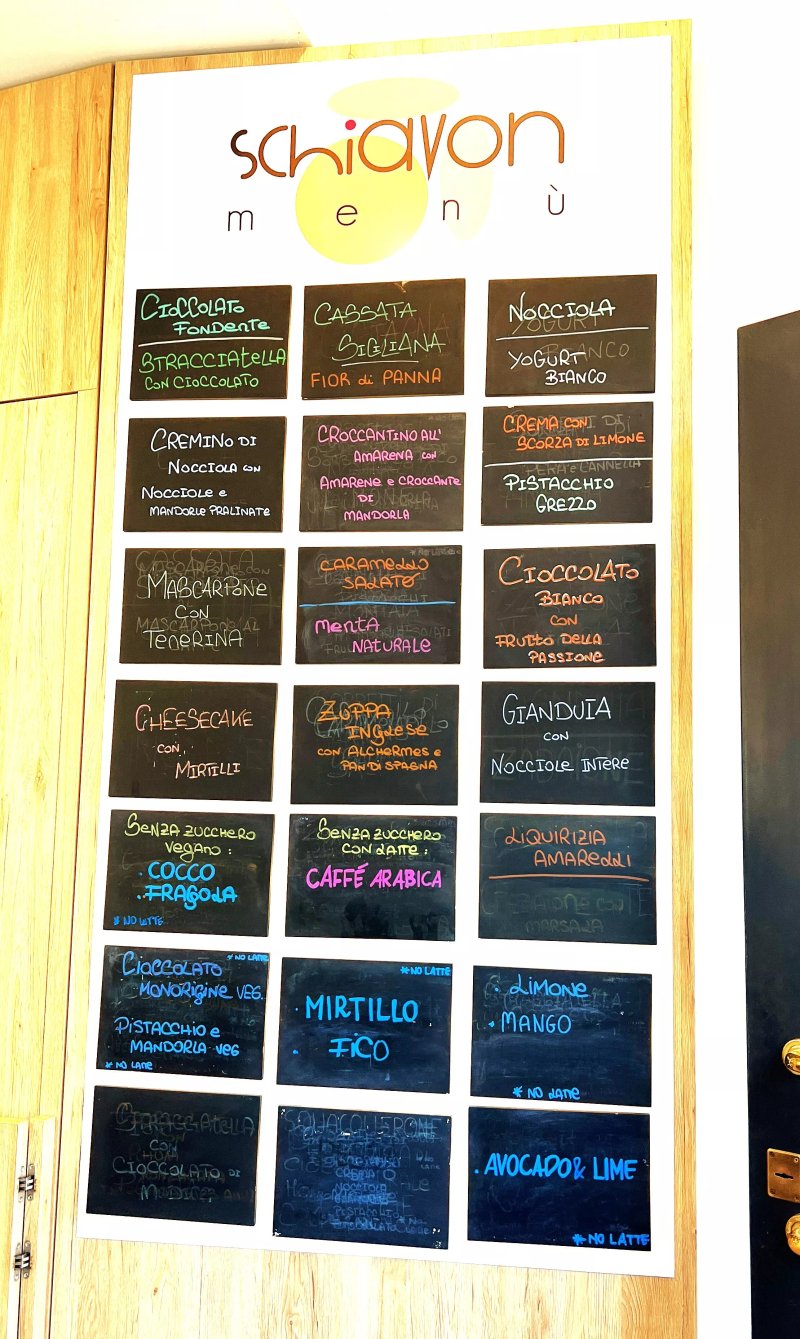 schiavon
menù
CIOCCOLATO
FONDENTE
STRACCIATELLA
CON CIOCCOLATO
CASSATA
SICILIANA
FIOR di PANNA
NOCCIOLA
YOGURT
BIANCO
CREMINO DI
NOCCIOLA CON
NOCCIOLE e
MANDORLE PRALINATE
CROCCANTINO ALL'
AMARENA CON
AMARENE e CROCCANTE
DI
MANDORLA
CREMA CON
SCORZA DI LIMONE
PISTACCHIO
GREZZO
MASCARPONE
CON
TENERINA
CARAMELLO
SALATO
MENTA
NATURALE
CIOCCOLATO
BIANCO
CON
FRUTTO DELLA
PASSIONE
CHEESECAKE
CON
MIRTILLI
ZUPPA
INGLESE
CON ALCHERMES e
PAN DI SPAGNA
GIANDUIA
CON
NOCCIOLE INTERE
SENZA ZUCCHERO
VEGANO:
. COCCO
. FRAGOLA
* NO LATTE
SENZA ZUCCHERO
CON LATTE:
CAFFÉ ARABICA
LIQUIRIZIA
AMARELLI
* NO LATTE
CIOCCOLATO
MONORIGINE VEG.
PISTACCHIO e
MANDORLA VEG
* NO LATTE
* NO LATTE
MIRTILLO
. FICO
. LIMONE
. MANGO
* NO LATTE
STRACCIATELLA
CON
CIOCCOLATO DI
. AVOCADO & LIME
* NO LATTE